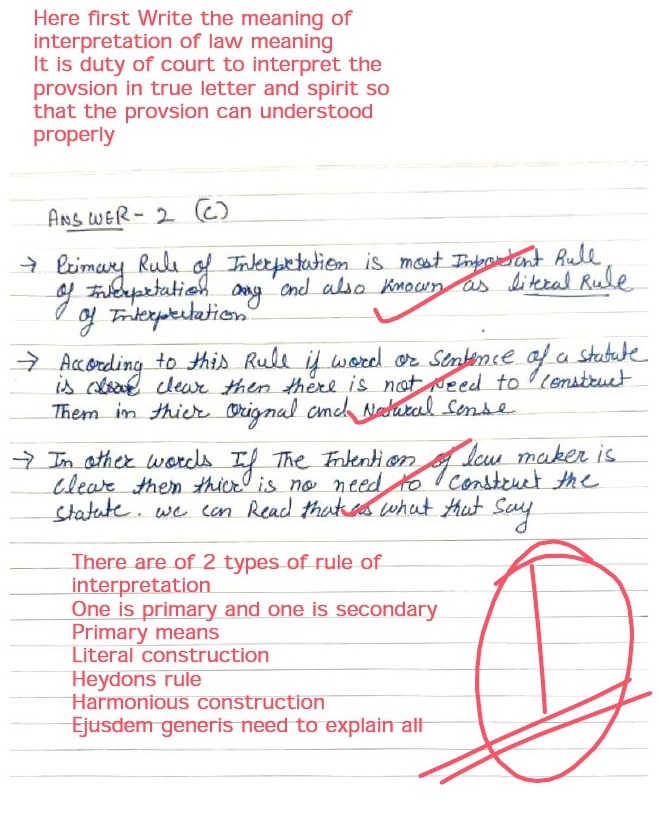 Here first Write the meaning of
interpretation of law meaning
It is duty of court to interpret the
provsion in true letter and spirit so
that the provsion can understood
properly
ANSWER - 2 (C)
→ Primary Rule of Interpetation is most Important Rule
of Interpetation and also known as literal Rule
of Interpertation
→ According to this Rule if word or Sentence of a statute
is clear then there is not need to Construct
Them in thier Orignal and Natural Sense
→ In other words If The Intention of law maker is
Clear then thier is no need to Construct the
Statute. we can Read that as what that Say
There are of 2 types of rule of
interpretation
One is primary and one is secondary
Primary means
Literal construction
Heydons rule
Harmonious construction
Ejusdem generis need to explain all
1